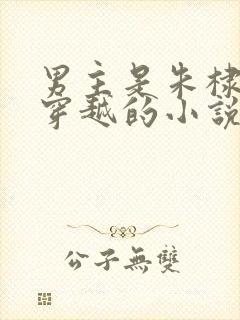 男主是朱棣
穿越的小說
公子無雙